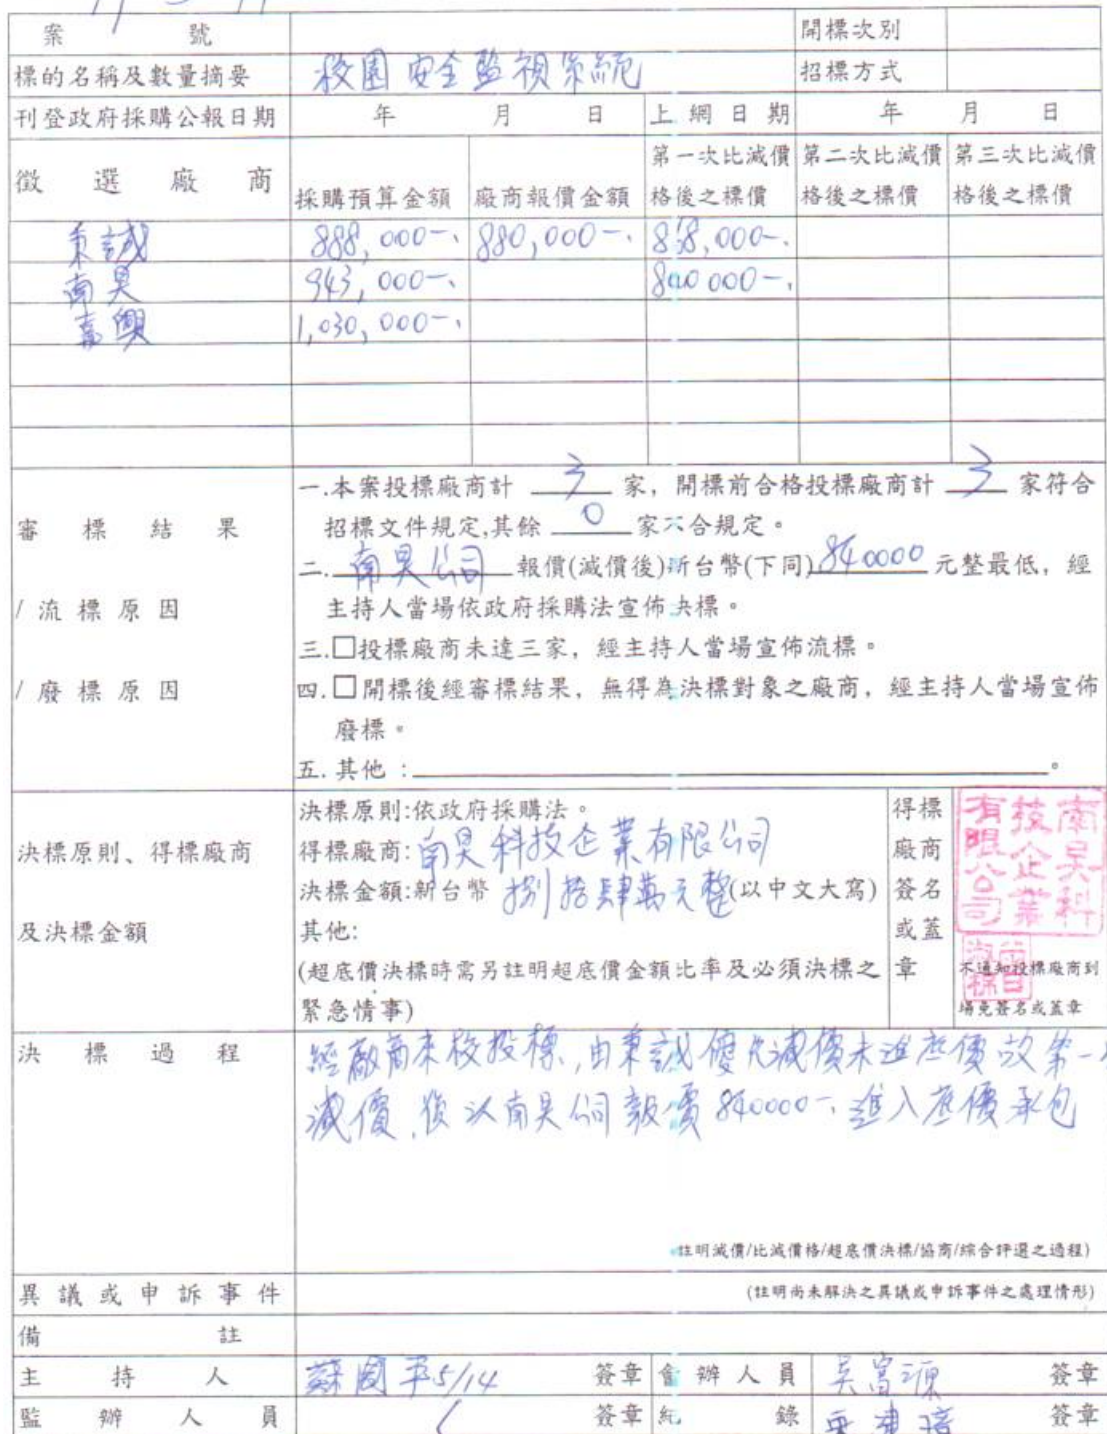 案 號 開標次別
標的名稱及數量摘要 校園安全監視系統 招標方式
刊登政府採購公報日期 年 月 日 上網日期 年 月 日
徵選廠商 採購預算金額 廠商報價金額 第一次比減價格後之標價 第二次比減價格後之標價 第三次比減價格後之標價
秉誠 888,000-. 880,000-. 858,000-.
南昊 943,000-. 840000-.
嘉興 1,030,000-.
審標結果
/流標原因
/廢標原因
一.本案投標廠商計 3 家，開標前合格投標廠商計 3 家符合
招標文件規定,其餘 0 家不合規定。
二.南昊公司報價(減價後)新台幣(下同)840000元整最低，經
主持人當場依政府採購法宣佈決標。
三.□投標廠商未達三家，經主持人當場宣佈流標。
四.□開標後經審標結果，無得為決標對象之廠商，經主持人當場宣佈
廢標。
五.其他：。
決標原則、得標廠商
及決標金額
決標原則:依政府採購法。
得標廠商:南昊科技企業有限公司
決標金額:新台幣 捌拾肆萬元整(以中文大寫)
其他:
(超底價決標時需另註明超底價金額比率及必須決標之
緊急情事)
得標
廠商
簽名
或蓋
章
南昊科
技企業
有限公司
不通知投標廠商到
場免簽名或蓋章
決標過程
經廠商來校投標,由秉誠優先減價未進底價故第一
減價,後以南昊公司報價840000-.進入底價承包
註明減價/比減價格/超底價決標/協商/綜合評選之過程)
異議或申訴事件 (註明尚未解決之異議或申訴事件之處理情形)
備註
主持人 蘇國平5/14 簽章 會辦人員 吳富源 簽章
監辦人員 簽章 紀錄 簽章